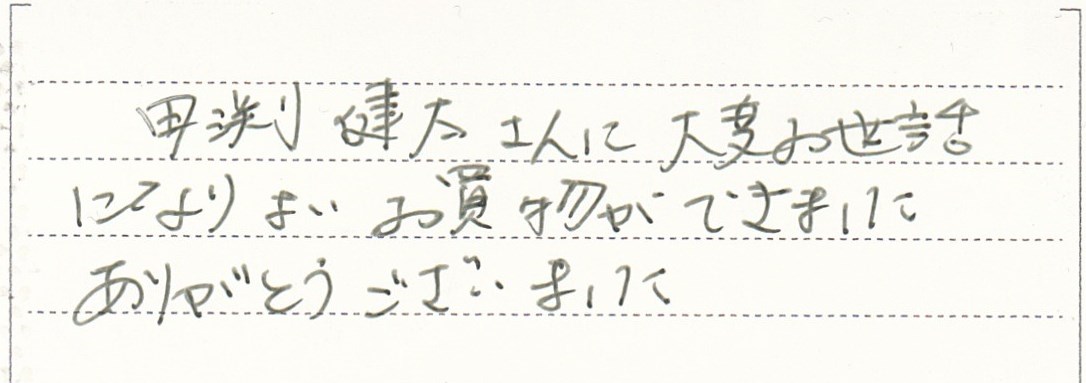 田渕健太さんに大変お世話
になりよいお買物ができました
ありがとうございました